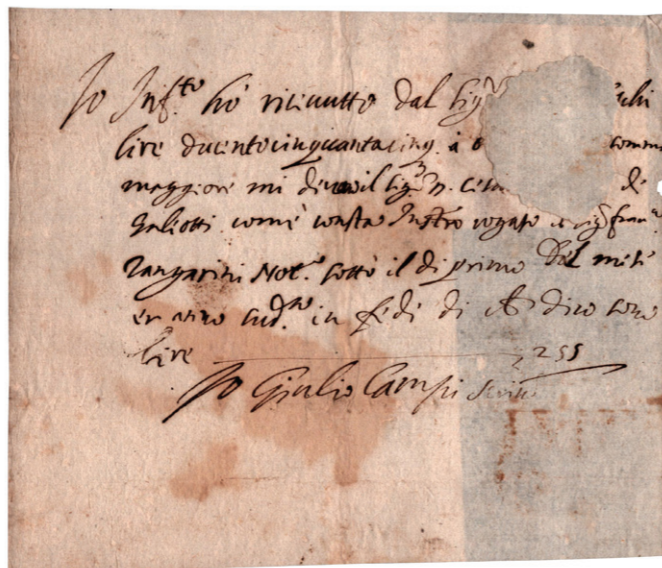 Io Inf.to hò riceuutto dal Sig.r
lire ducentocinquantacinq. à
maggiore mi deue il Sig.r de
Galiotti come consta Instro rogato
Zangarini Not.o sotto il di primo Del mese
et anno sud.to in fede di ciò dico sono
lire 255
Io Giulio Campi scrissi